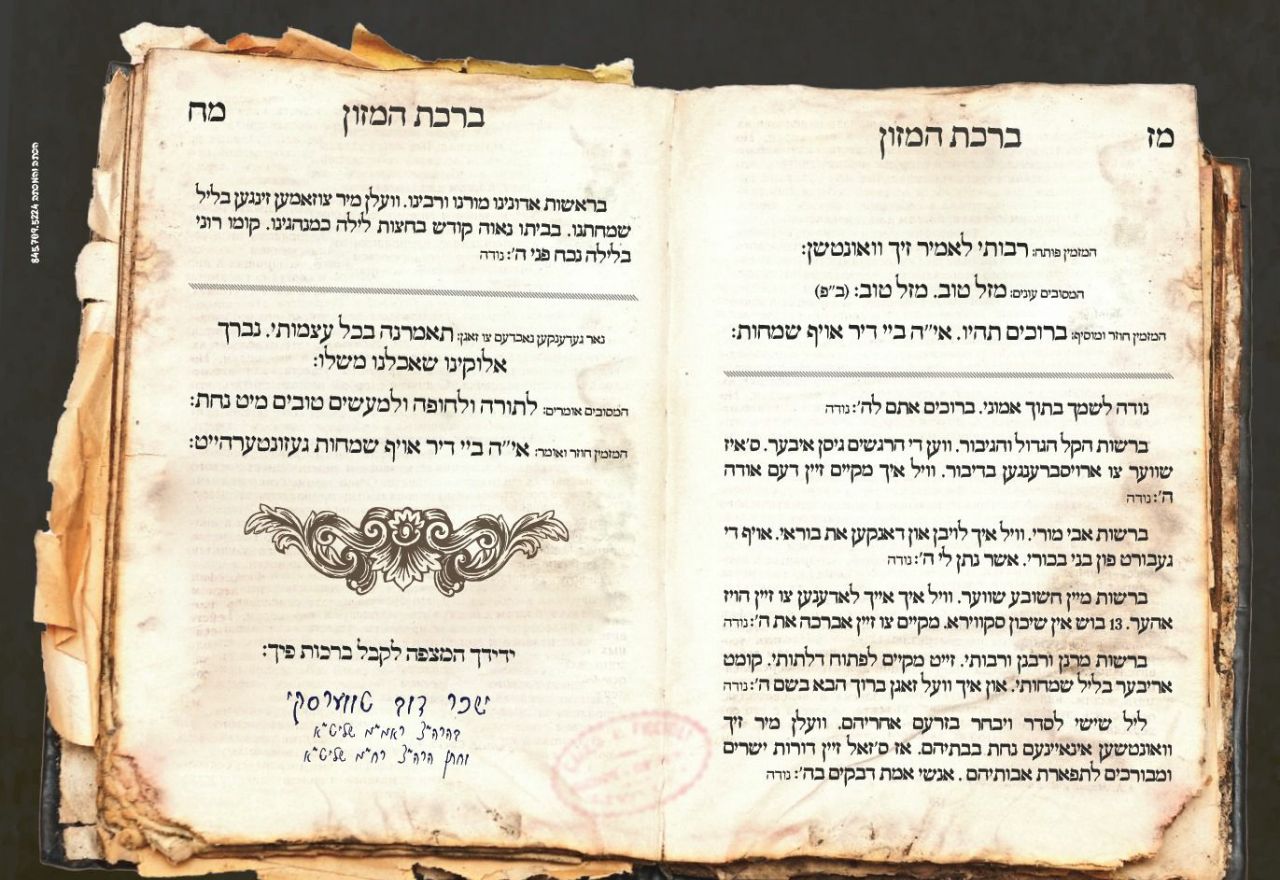 מז
ברכת המזון
המזמין פותח: רבותי לאמיר זיך וואונטשן:
המסובים עונים: מזל טוב. מזל טוב: (ב״פ)
המזמין חוזר ומוסיף: ברוכים תהיו. אי״ה ביי דיר אויף שמחות:
נודה לשמך בתוך אמוני. ברוכים אתם לה׳: נודה
ברשות הקל הגדול והגיבור. ווען די הרגשים גיסן איבער. ס׳איז
שווער צו ארויסברענגען בדיבור. וויל איך מקיים זיין דעם אודה
ה׳: נודה
ברשות אבי מורי. וויל איך לויבן און דאנקען את בוראי. אויף די
געבורט פון בני בכורי. אשר נתן לי ה׳: נודה
ברשות מיין חשובע שווער. וויל איך אייך לאדענען צו זיין הויז
אהער. 13 בוש אין שיכון סקווירא. מקיים צו זיין אברכה את ה׳: נודה
ברשות מרנן ורבנן ורבותי. זייט מקיים לפתוח דלתותי. קומט
אריבער בליל שמחותי. און איך וועל זאגן ברוך הבא בשם ה׳: נודה
ליל שישי לסדר ויבחר בזרעם אחריהם. וועלן מיר זיך
וואונטשען אינאיינעם נחת בבתיהם. אז ס׳זאל זיין דורות ישרים
ומבורכים לתפארת אבותיהם. אנשי אמת דבקים בה׳: נודה
ברכת המזון
מח
בראשות אדונינו מורנו ורבינו. וועלן מיר צוזאמען זינגען בליל
שמחתנו. בביתו נאוה קודש בחצות לילה כמנהגינו. קומו רוני
בלילה נכח פני ה׳: נודה
נאר געדענקען נאכדעם צו זאגן: תאמרנה בכל עצמותי. נברך
אלוקינו שאכלנו משלו:
המסובים אומרים: לתורה ולחופה ולמעשים טובים מיט נחת:
המזמין חוזר ואומר: אי״ה ביי דיר אויף שמחות געזונטערהייט:
ידידך המצפה לקבל ברכות פיך:
ישכר דוב טווערסקי
בהרה״צ ראמ״מ שליט״א
וחתן הרה״צ רח״מ שליט״א
845.709.5224